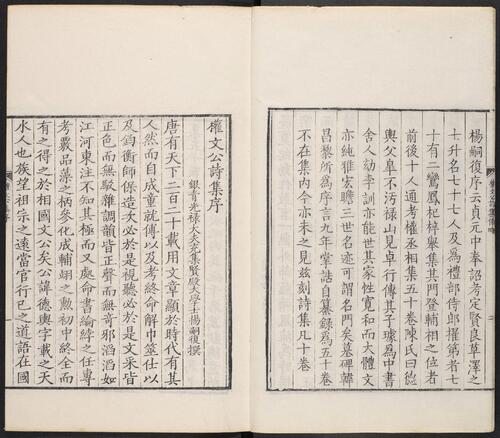 楊嗣復序云貞元中奉詔考定賢良草澤之
士升名七十七人及爲禮部侍郎擢第者七
十有二鸞鳳杞梓舉集其門登輔相之位者
前後十人通考權丞相集五十卷陳氏曰德
輿父臯不汚祿山見卓行傳其子璩爲中書
舍人劾李訓亦能世其家性寬和而大體文
亦純雅宏贍三世名迹可謂名門矣墓碑韓
昌黎所爲序言九年掌誥自纂錄爲五十卷
不在集內今亦未之見茲刻詩集凡十卷
權文公詩集序
銀青光祿大夫集賢殿大學士楊嗣復撰
唐有天下二百二十載用文章顯於時代有其
人然而自成童就傅以及考終命解巾筮仕以
及鈞衡師保造次必於是視聽必於是文采皆
正色而無駁雜調韻皆正聲而無奇邪滔滔如
江河東注不知其極而又處命書綸綍之任專
考覈品藻之柄參化成輔翊之勲初中終全而
有之得之於相國文公矣公諱德輿字載之天
水人也族望祖宗之遠當官行己之道語在國